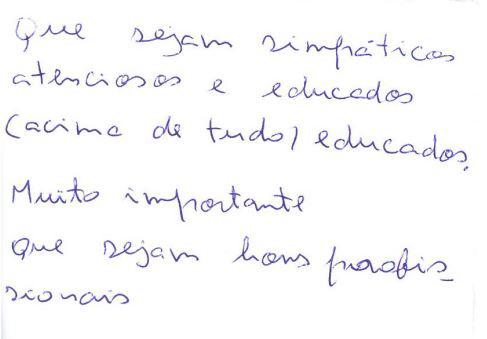 Que sejam simpáticos
atenciosos e educados
(acima de tudo) educados.
Muito importante
que sejam bons profis_
sionais